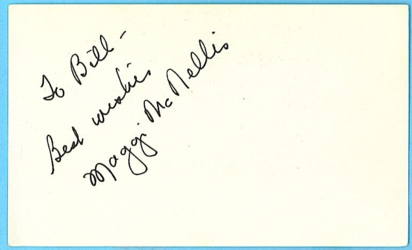 To Bill-
Best wishes
Maggi McNellis